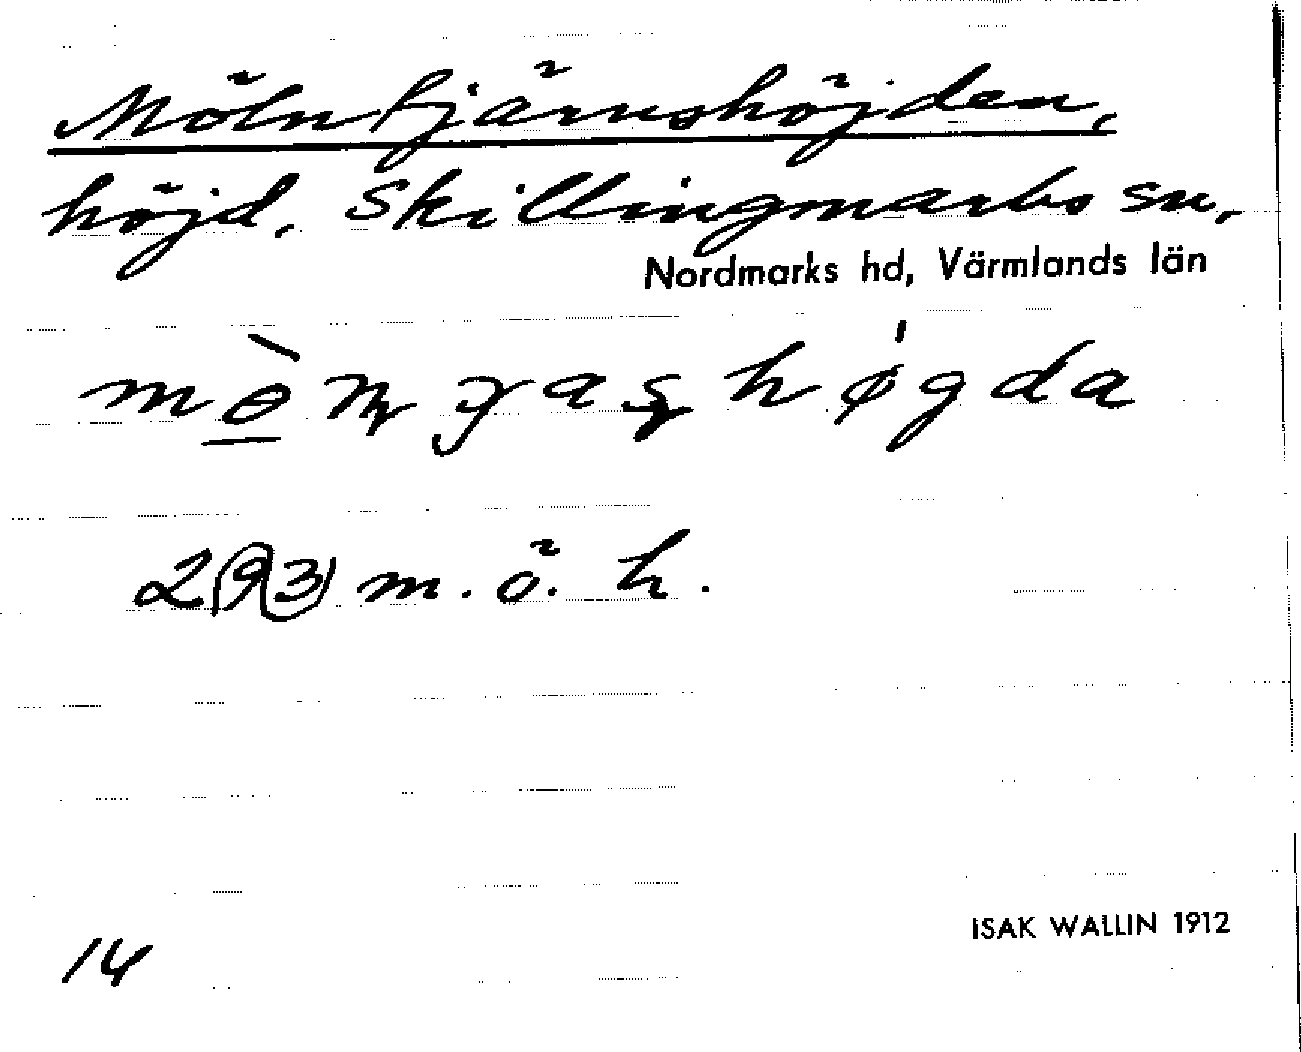 Mölntjärnshöjden,
höjd. Skillingmarks sn,
Nordmarks hd, Värmlands län
293 m. ö. h.
ISAK WALLIN 1912
14